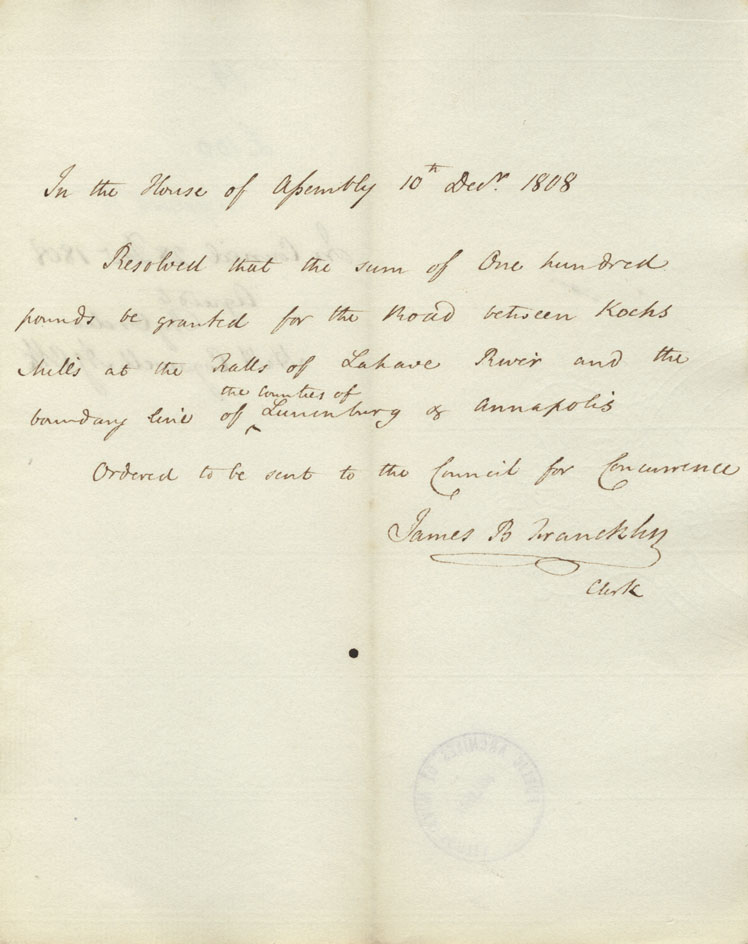 In the House of Assembly 10th Decr. 1808
Resolved that the sum of One hundred
pounds be granted for the Road between Kochs
Mills at the Falls of Lahave River and the
the Counties of
boundary line of ^ Lunenburg & Annapolis
Ordered to be sent to the Council for Concurrence
James B Franckhn
Clerk
PUBLIC ARCHIVES OF NOVA SCOTIA